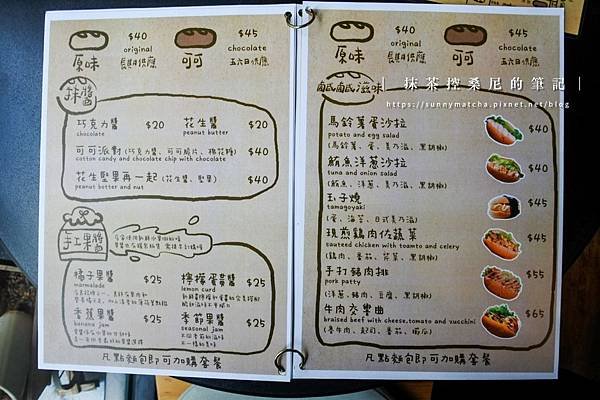 $40
original
原味 長期供應
$45
chocolate
可可 五六日供應
抹醬
巧克力醬 $20
chocolate
花生醬 $20
peanut butter
可可派對 (巧克力醬、可可脆片、棉花糖) $40
cotton candy and chocolate chip with chocolate
花生堅果再一起 (花生醬、堅果) $40
peanut botter and nut
手工果醬
橘子果醬 $25
marmalade
檸檬蛋黃醬 $25
lemon curd
香蕉果醬 $25
banana jam
季節果醬 $25
seasonal jam
凡點麵包即可加購套餐
$40
original
原味 長期供應
$45
chocolate
可可 五六日供應
鹹鹹滋味
| 抹茶控桑尼的筆記 |
https://sunnymatcha.pixnet.net/blog
馬鈴薯蛋沙拉 $40
potato and egg salad
(馬鈴薯、蛋、美乃滋、黑胡椒)
鮪魚洋蔥沙拉 $45
tuna and onion salad
(鮪魚、洋蔥、美乃滋、黑胡椒)
玉子燒 $45
tamagoyaki
(蛋、海苔、日式美乃滋)
現煎鷄肉佐蔬菜 $45
sauteed chicken with toamto and celery
(鷄肉、番茄、芹菜、黑胡椒)
手打豬肉排 $55
pork patty
(洋蔥、豬肉、豆腐、黑胡椒)
牛肉交響曲 $65
braised beef with cheese,tomato and zucchini
(滷牛肉、起司、番茄、櫛瓜)
凡點麵包即可加購套餐